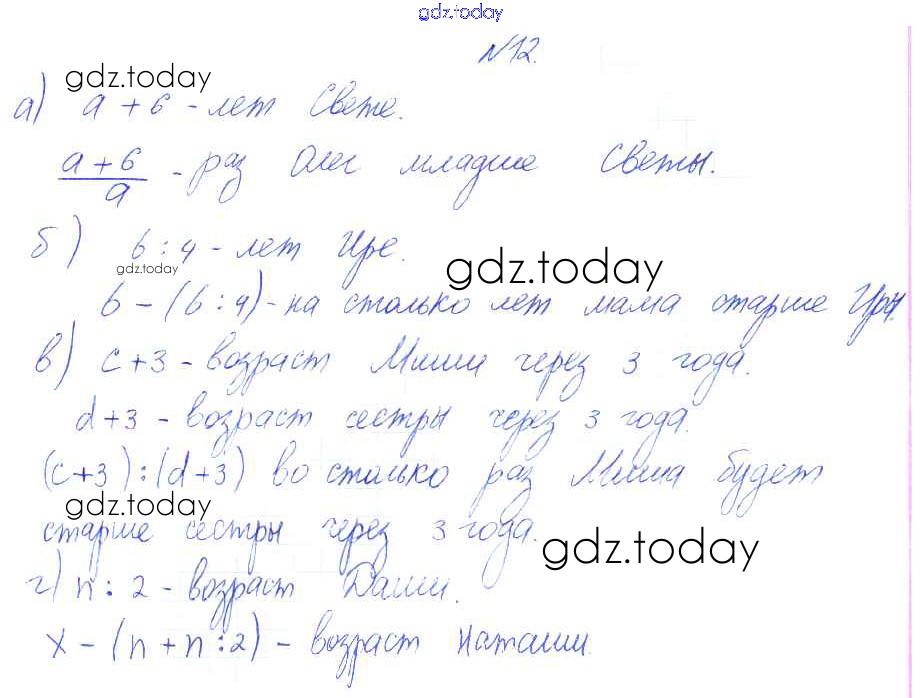 gdz.today
№12.
gdz.today
а) a + 6 - лет Свете.
(a + 6)/a - раз Олег младше Светы.
б) b : 4 - лет Ире.
gdz.today
gdz.today
b - (b : 4) - на столько лет мама старше Иры.
в) c + 3 - возраст Миши через 3 года.
d + 3 - возраст сестры через 3 года.
(c + 3) : (d + 3) во столько раз Миша будет
gdz.today
старше сестры через 3 года.
gdz.today
г) n : 2 - возраст Даши.
x - (n + n : 2) - возраст Наташи.